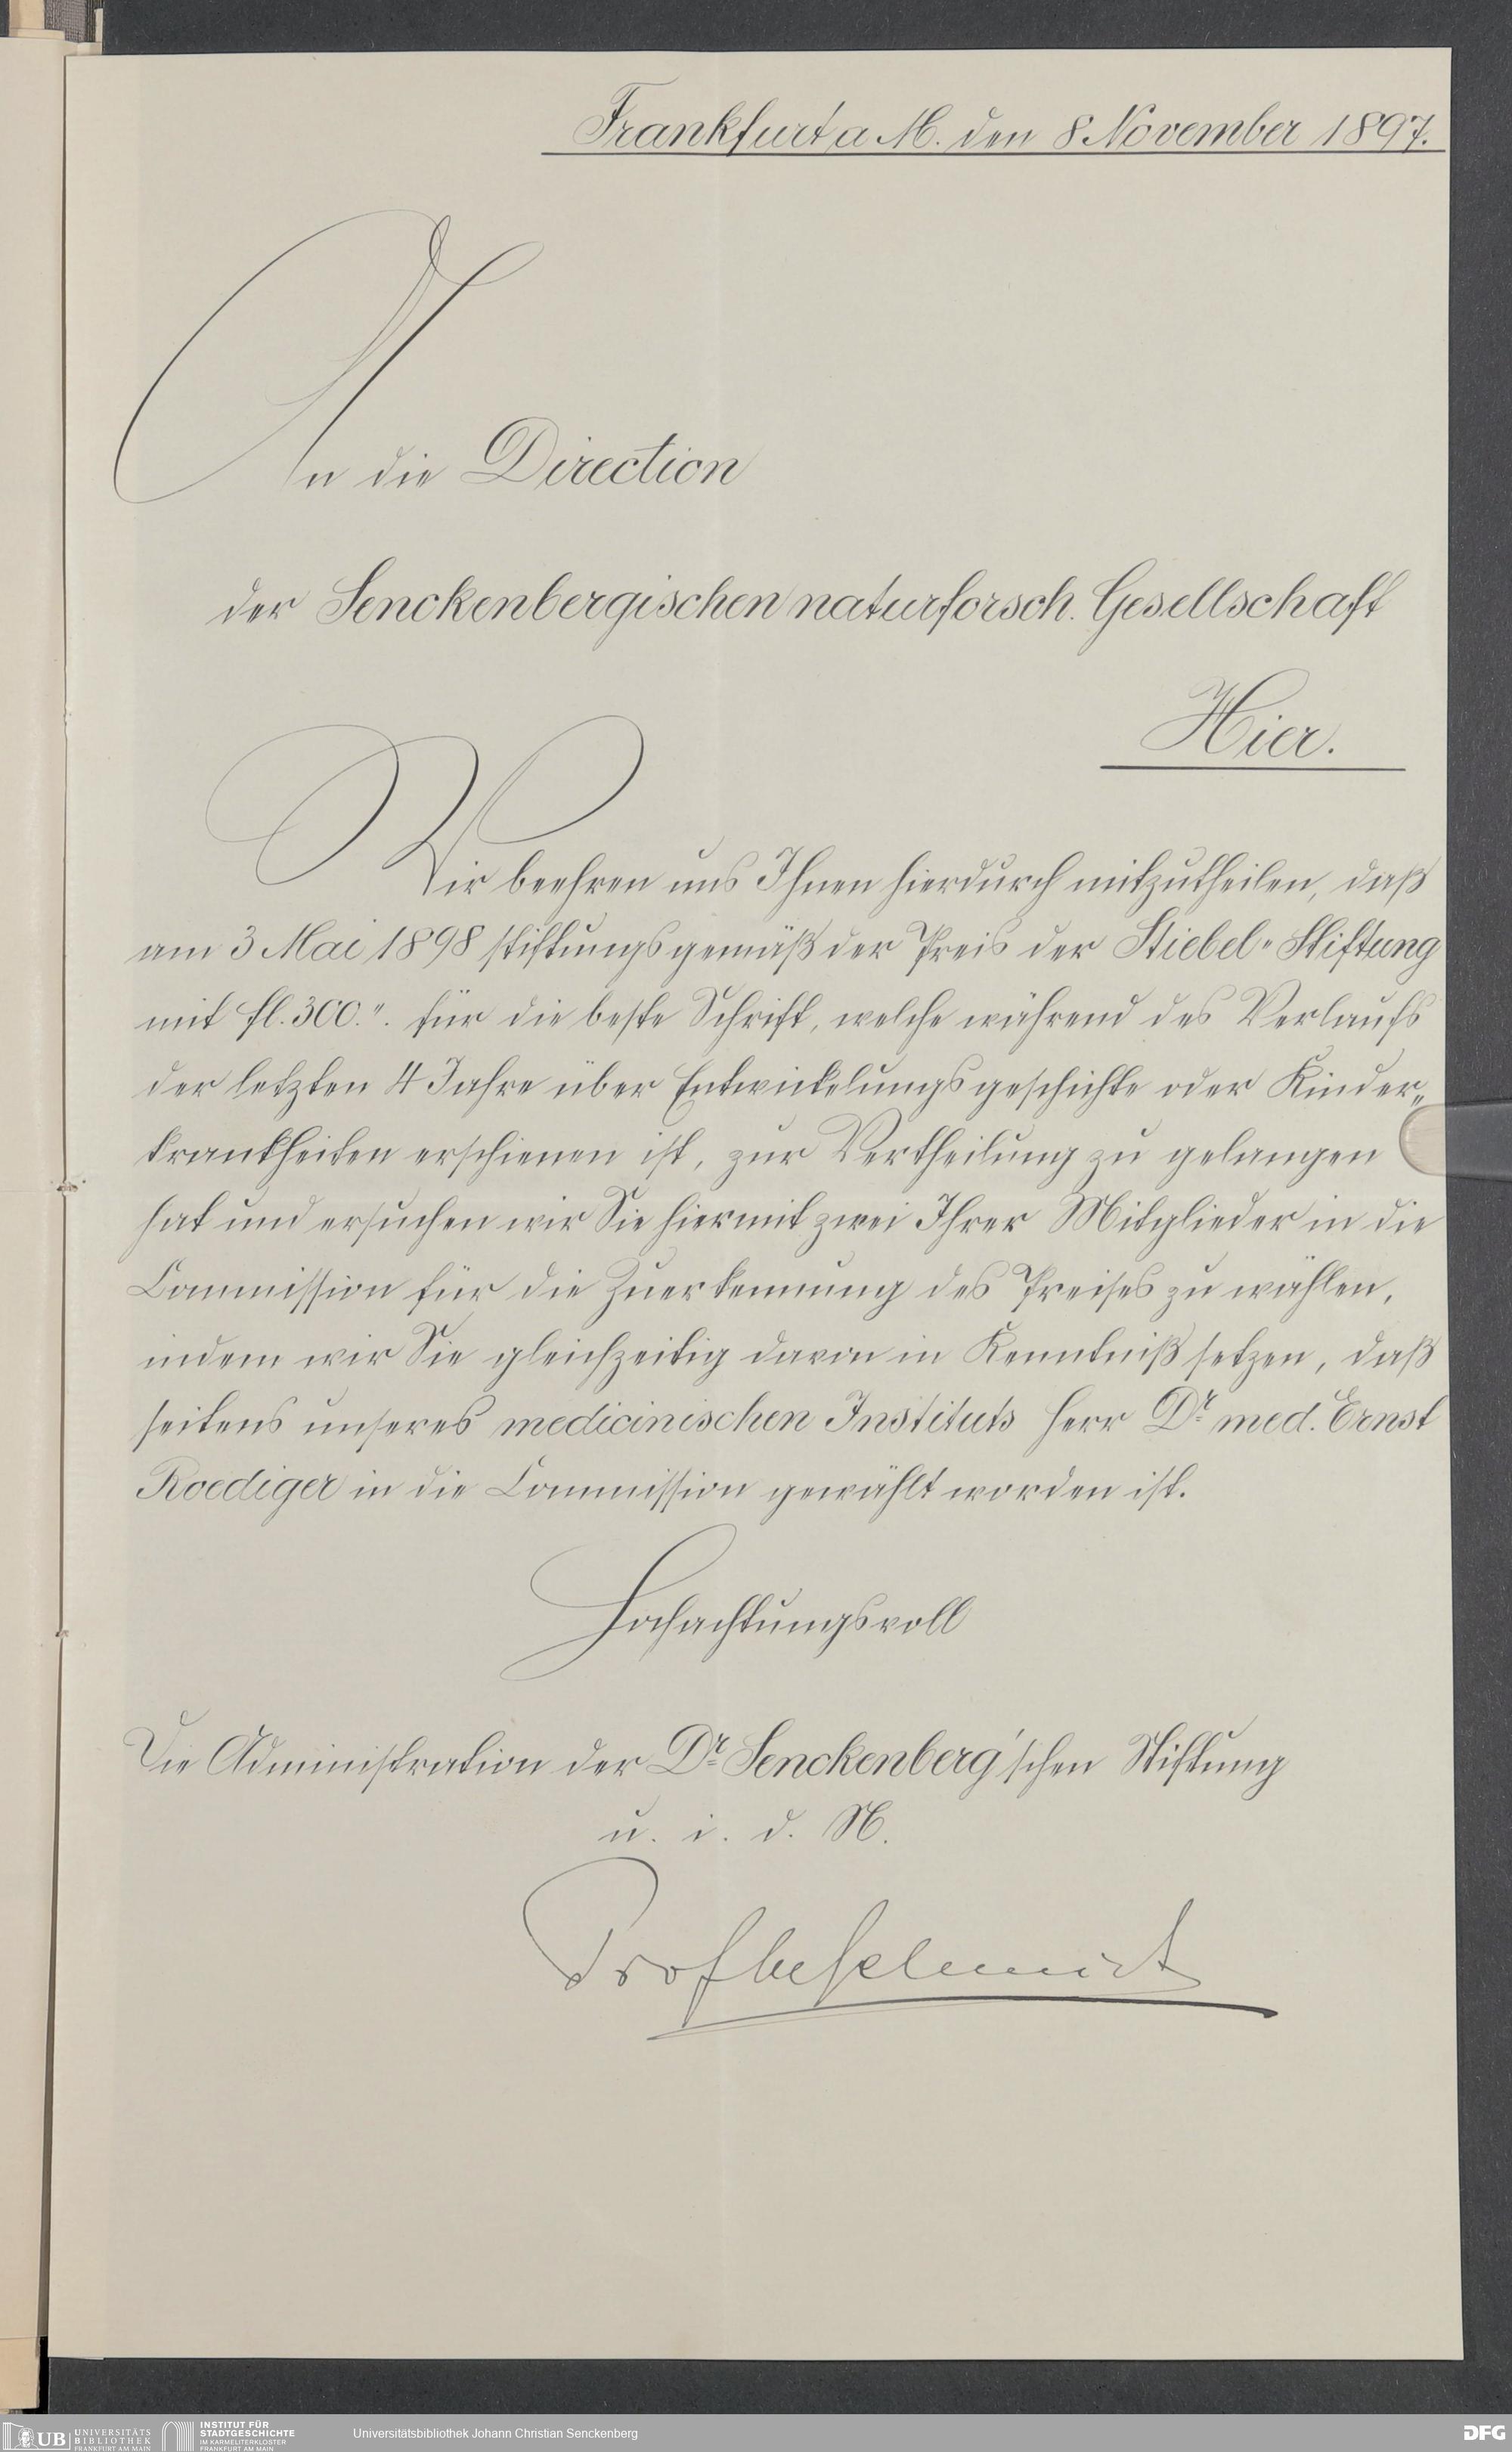 Frankfurt a M. den 8 November 1897.
An die Direction
der Senckenbergischen naturforsch. Gesellschaft
Hier.
Wir beehren uns Ihnen hierdurch mitzutheilen, daß
am 3 Mai 1898 stiftungsgemäß der Preis der Stiebel-Stiftung
mit fl. 300.". für die beste Schrift, welche während des Verlaufs
der letzten 4 Jahre über Entwickelungsgeschichte oder Kinder„
krankheiten erschienen ist, zur Vertheilung zu gelangen
hat und ersuchen wir Sie hiermit zwei Ihrer Mitglieder in die
Commission für die Zuerkennung des Preises zu wählen,
indem wir Sie gleichzeitig davon in Kenntniß setzen, daß
seitens unseres medicinischen Instituts Herr Dr med. Ernst
Roediger in die Commission gewählt worden ist.
Hochachtungsvoll
Die Administration der Dr Senckenberg'schen Stiftung
u. i. d. N.
UB UNIVERSITÄTS
BIBLIOTHEK
FRANKFURT AM MAIN
INSTITUT FÜR
STADTGESCHICHTE
IM KARMELITERKLOSTER
FRANKFURT AM MAIN
Universitätsbibliothek Johann Christian Senckenberg
DFG